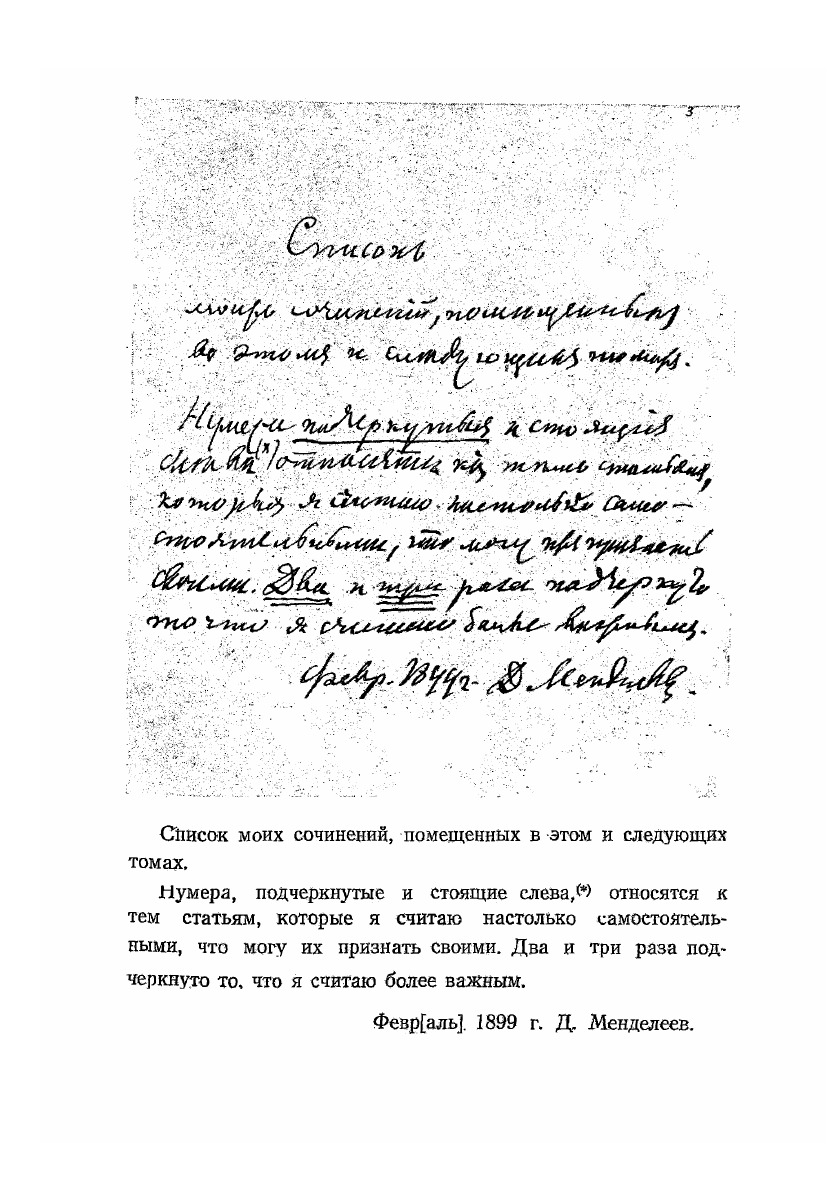 3
Списокъ
моихъ сочиненій, помѣщенныхъ
въ этомъ и слѣдующихъ томахъ.
Нумера подчеркнутые и стоящіе
слѣва (*) относятся къ тѣмъ статьямъ,
которыя я считаю настолько само-
стоятельными, что могу ихъ признать
своими. Два и три раза подчеркнуто
то что я считаю болѣе важнымъ.
Февр. 1899 г. Д Менделѣевъ.
Список моих сочинений, помещенных в этом и следующих
томах.
Нумера, подчеркнутые и стоящие слева,(*) относятся к
тем статьям, которые я считаю настолько самостоятель-
ными, что могу их признать своими. Два и три раза под-
черкнуто то, что я считаю более важным.
Февр[аль]. 1899 г. Д. Менделеев.